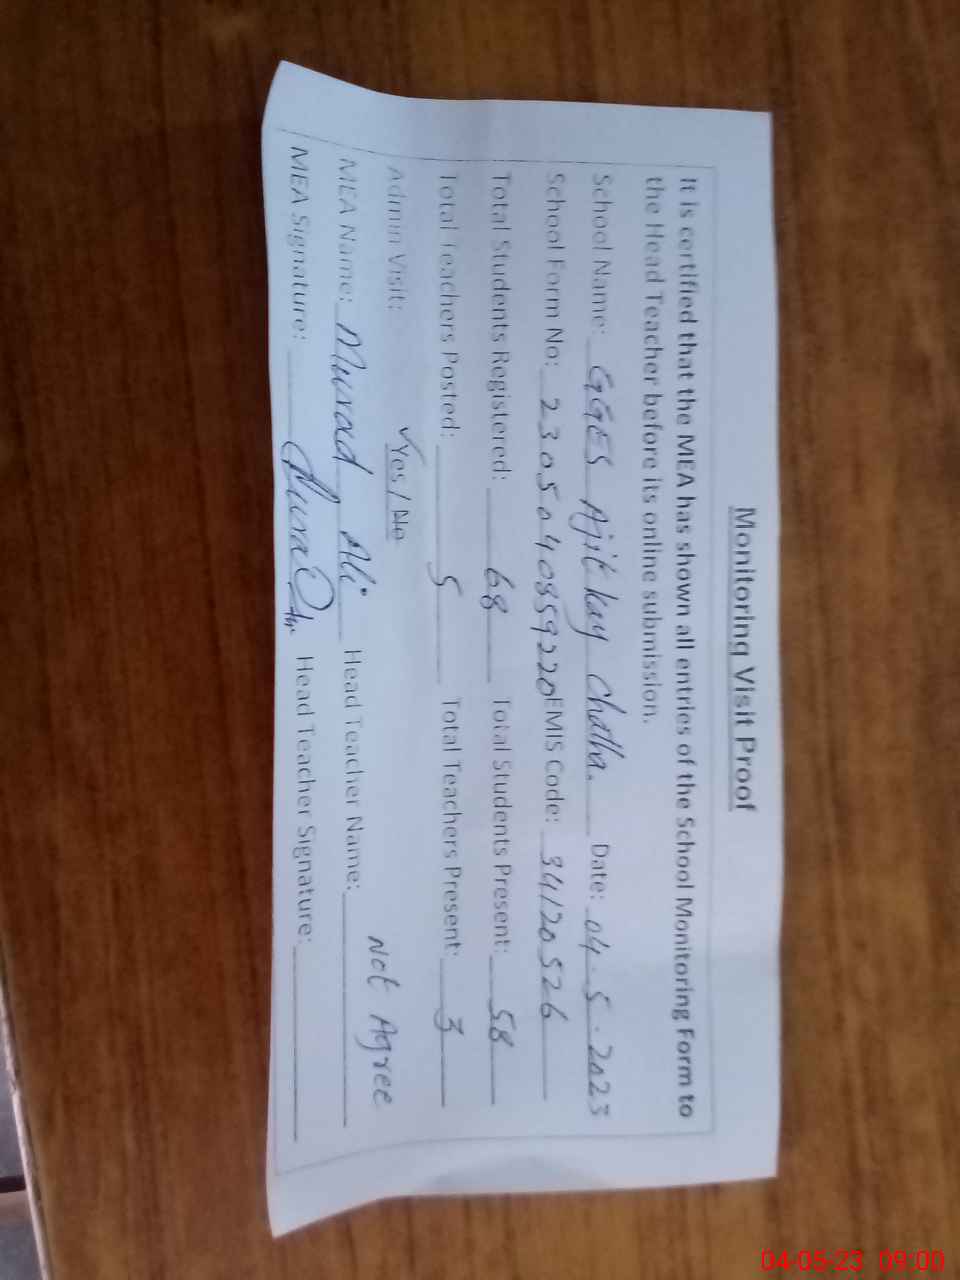 Monitoring Visit Proof
It is certified that the MEA has shown all entries of the School Monitoring Form to
the Head Teacher before its online submission.
School Name: GGES Ajit kay Chatha. Date: 04.5.2023
School Form No: 2305040859220 EMIS Code: 34120526
Total Students Registered: 68 Total Students Present: 58
Total Teachers Posted: 5 Total Teachers Present: 3
Admin Visit: ✓Yes / No
MEA Name: Murad Ali Head Teacher Name: Not Agree
MEA Signature: Head Teacher Signature:
04-05-23 09:00